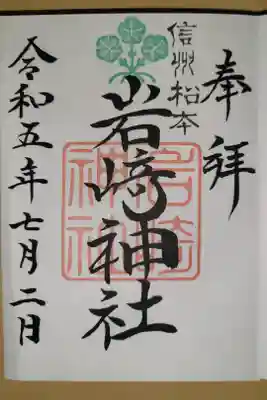 奉拝
信州松本
岩﨑神社
岩崎
神社
令和五年七月二日